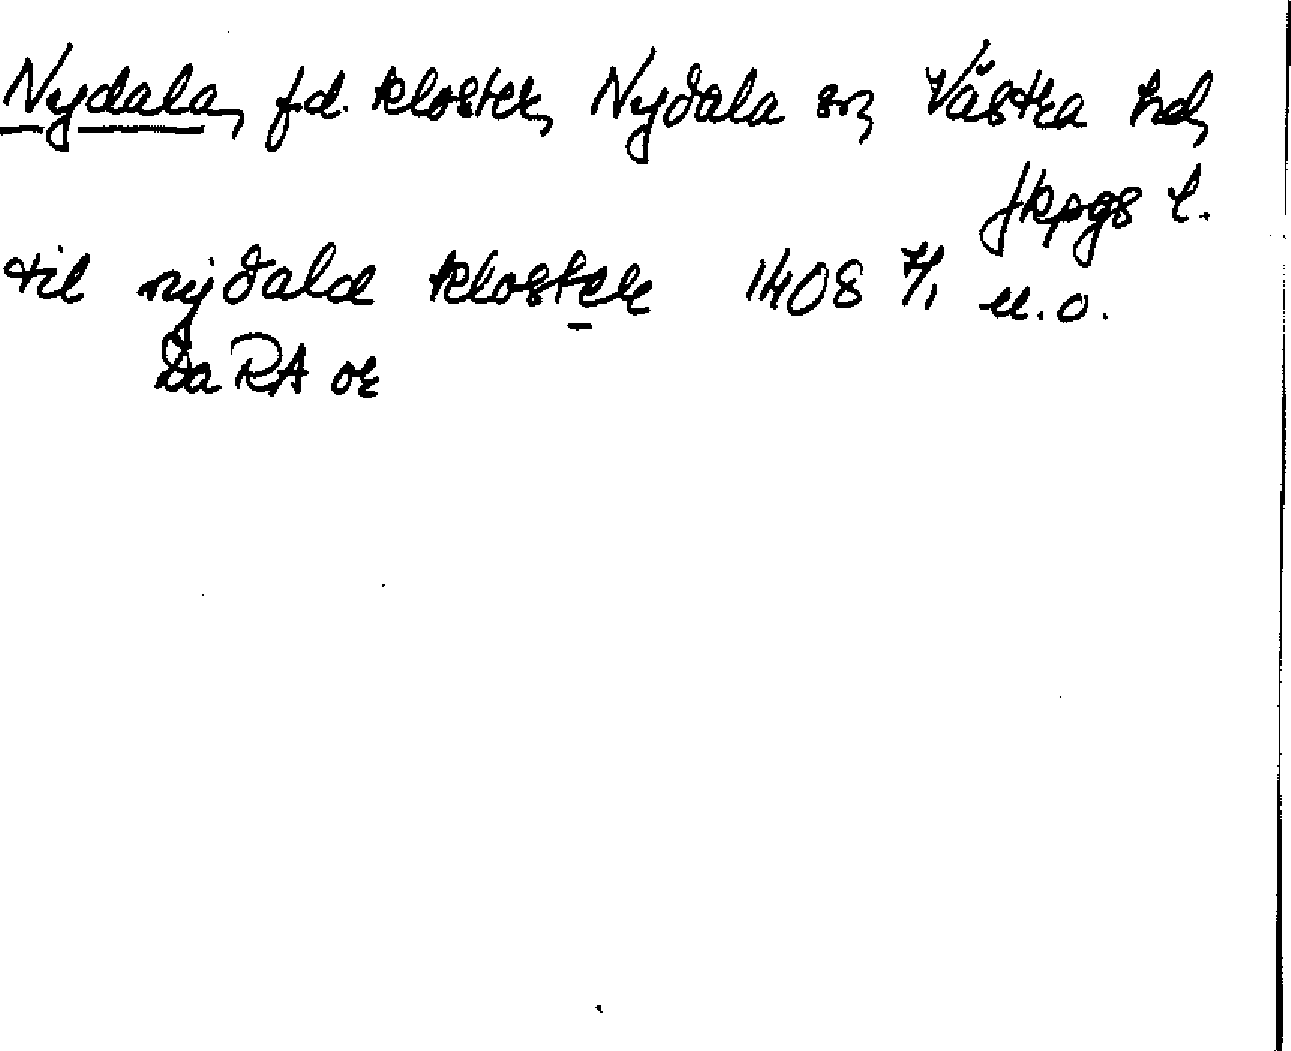 Nydala, fd. kloster, Nydala sn, Västra hd,
Jkpgs l.
til nydala kloster 1408 7/1 u.o.
Da RA or